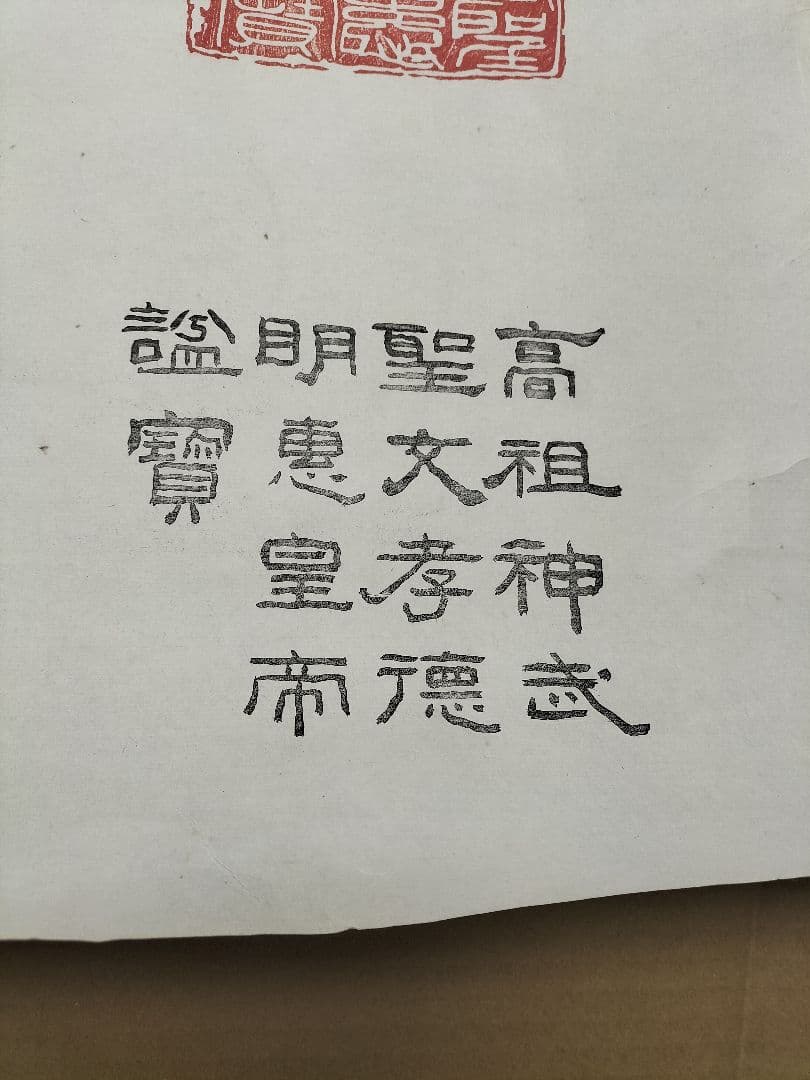 高祖神武
聖文孝德
明惠皇帝
諡寶